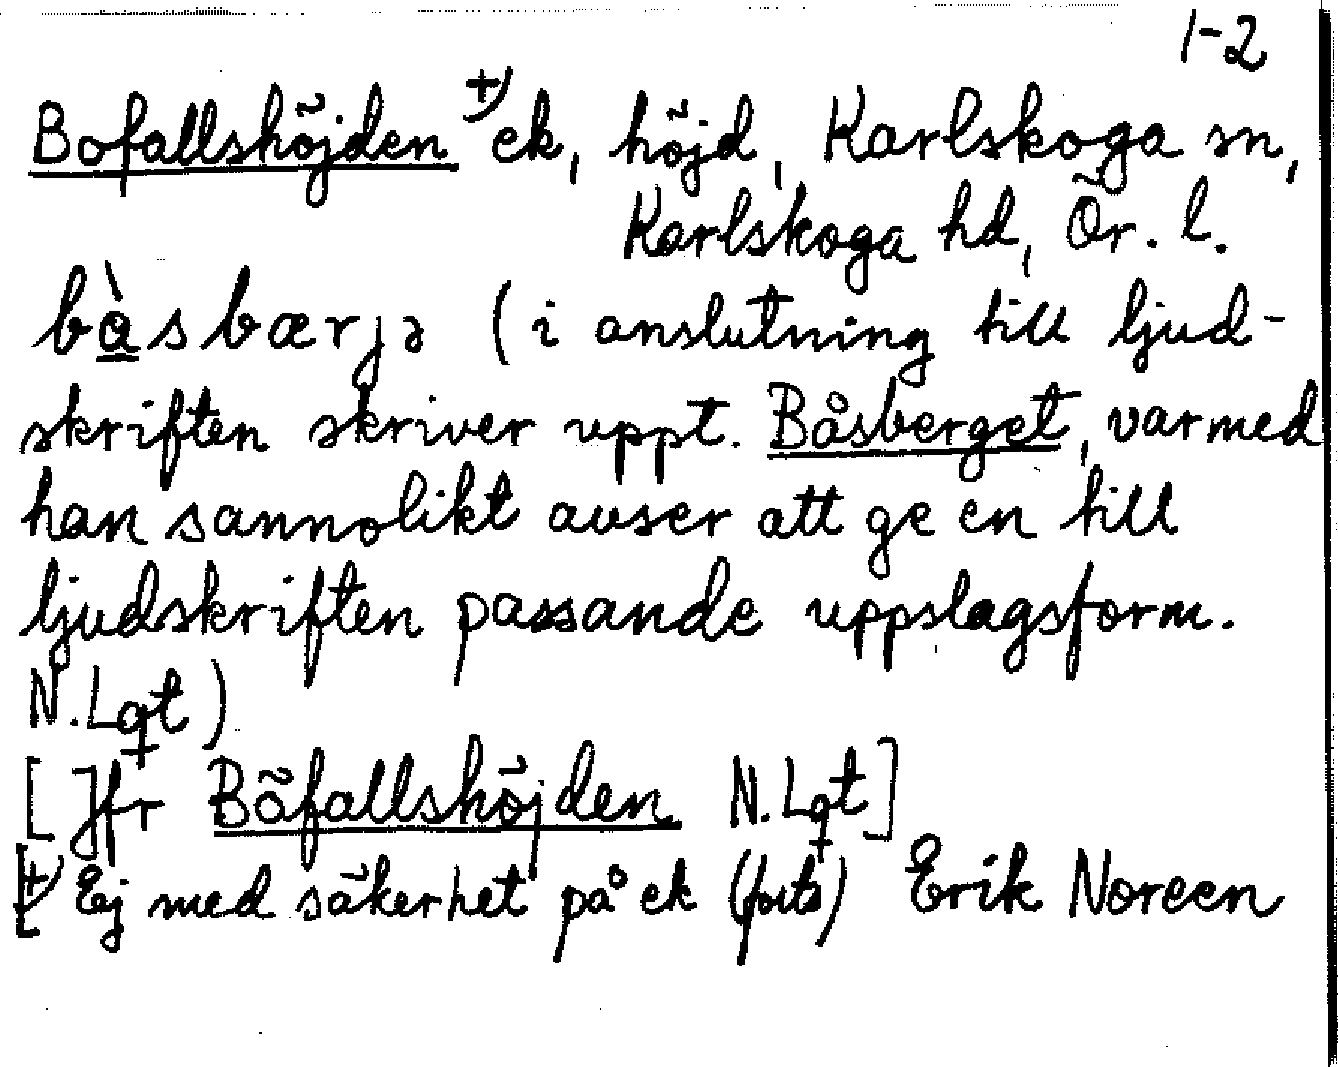 1-2
Bofallshöjden +) ek, höjd, Karlskoga sn,
Karlskoga hd, Ör. l.
bàsbærjə (i anslutning till ljud-
skriften skriver uppt. Båsberget, varmed
han sannolikt avser att ge en till
ljudskriften passande uppslagsform.
N. Lqt)
[Jfr Båfallshöjden N. Lqt]
[+) Ej med säkerhet på ek (forts) Erik Noreen